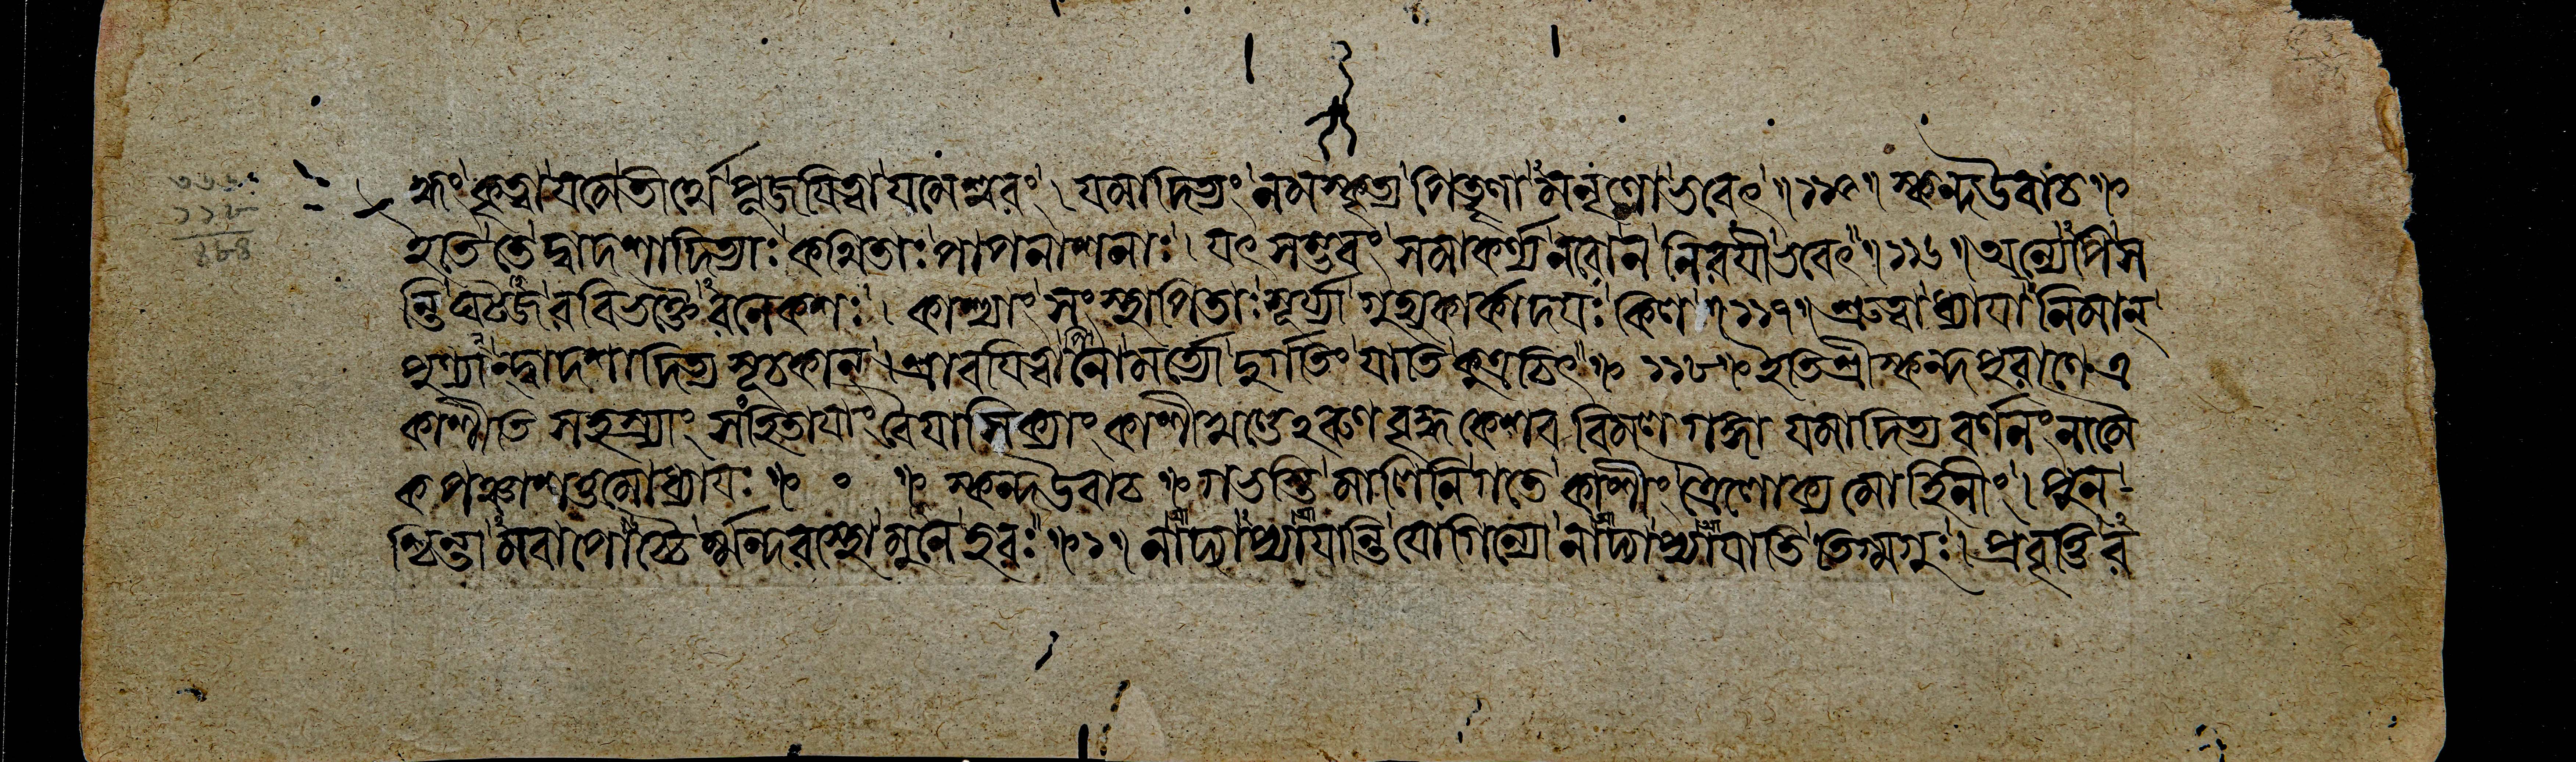 দ্ধং কৃত্বা যমেতীর্থে পূজযিত্বা যমেশ্বরং । যমাদিত্যং নমস্কৃত্য পিতৄণামনৃণোভবেৎ ॥ ১১৫ ॥ স্কন্দউবাচ ॥
ইতি তে দ্বাদশাদিত্যাঃ কথিতাঃ পাপনাশনাঃ । যৎ সম্ভবং সমাকর্ণ্য নরোন নিরযীভবেৎ ॥ ১১৬ ॥ অন্যেপি স
ন্তি ঘটজ রবিভক্তৈরনেকশঃ । কাশ্যাং সংস্থাপিতাঃ সূর্য্যা গুহ্যকার্কাদযঃ কিল ॥ ১১৭ ॥ শ্রুত্বাধ্যাযানিমান্
পুণ্যান্দ্বাদশাদিত্য সূচকান্ । শ্রাবযিত্বাপি নো মর্ত্যো দুর্গতিং যাতি কুত্রচিৎ ॥ ১১৮ ॥ ইতি শ্রীস্কন্দপুরাণে এ
কাশীতি সহস্র্যাং সংহিতাযাং বৈযাসিক্যাং কাশীখণ্ডে ঽরুণ বৃদ্ধ কেশব বিমল গঙ্গা যমাদিত্য বর্ণনং নামৈ
কপঞ্চাশত্তমোধ্যাযঃ ॥ ০ ॥ স্কন্দউবাচ ॥ গভস্তি মালিনি গতে কাশীং ত্রৈলোক্য মোহিনীং । পুন
শ্চিন্তামবাপোচ্চৈর্ম্মন্দরস্থো মুনে হরঃ ॥ ১ ॥ নাদ্যাপ্যাযান্তি যোগিন্যো নাদ্যাপ্যাযাতি তিগ্মগুঃ । প্রবৃত্তির